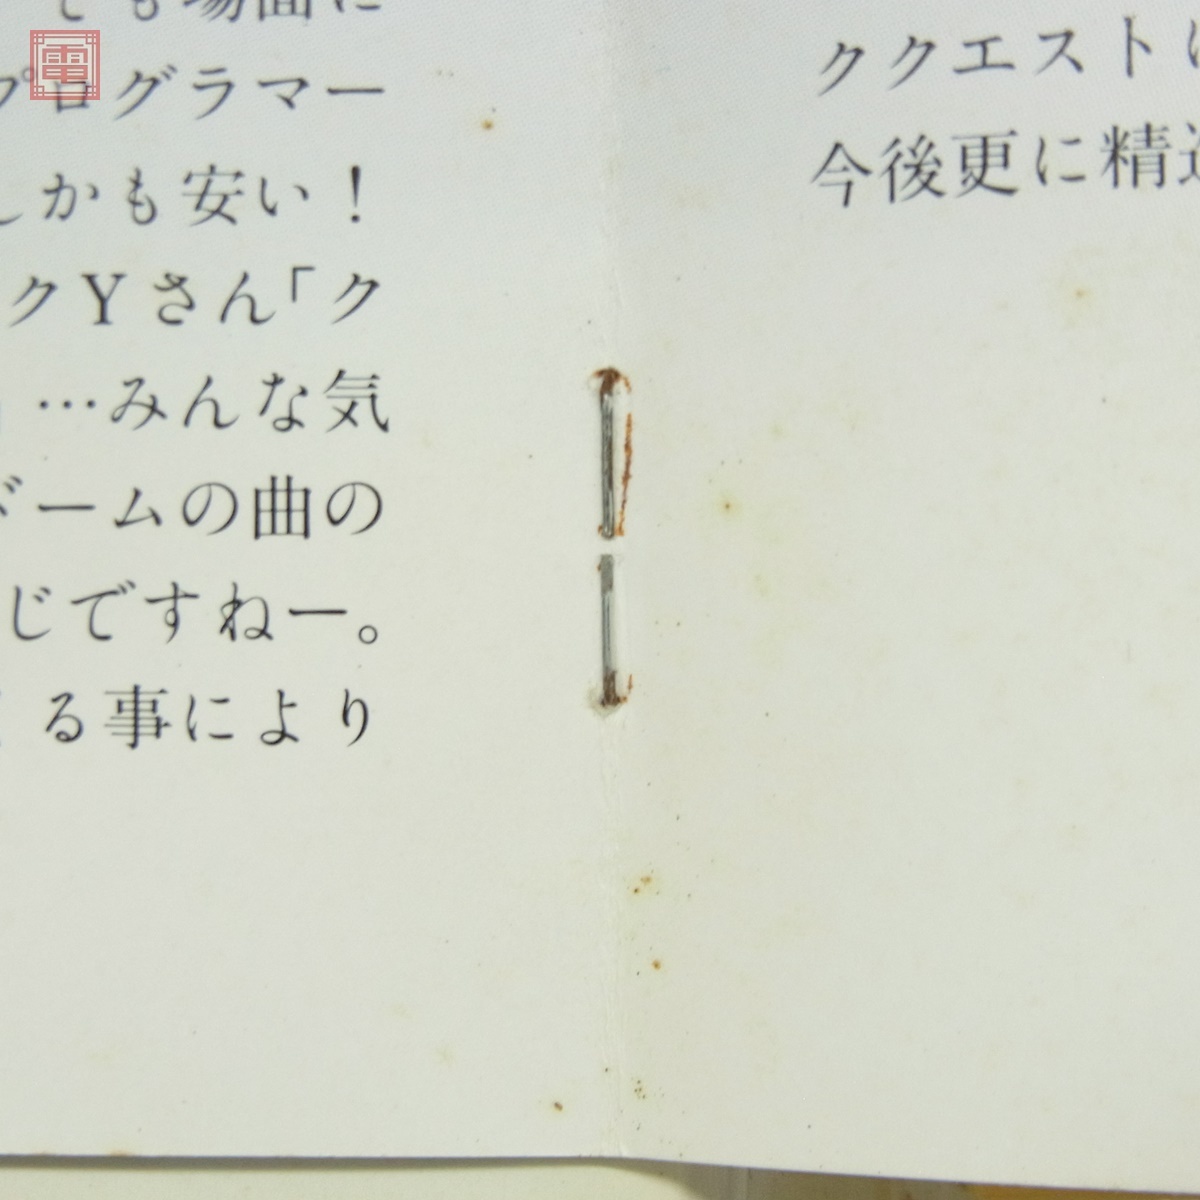 も場面に
プログラマー
しかも安い！
クYさん「ク
…みんな気
ドームの曲の
じですねー。
る事により
ククエストは
今後更に精進
電